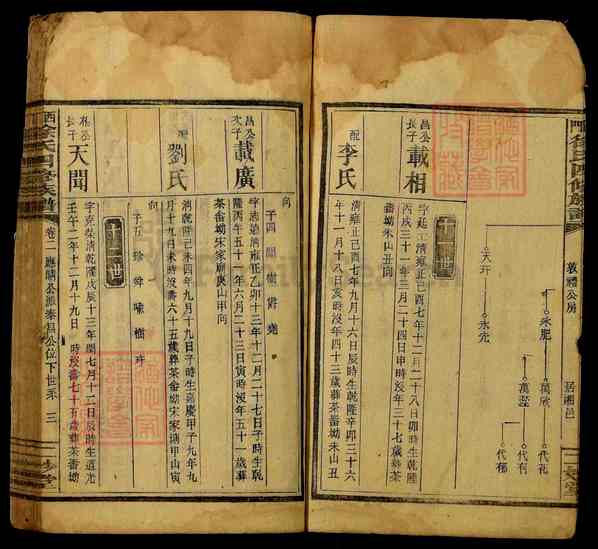 敦禮公房
居湘邑
永肥
天玕
永完
萬欣
萬蕊
代花
代有
代郁
十二世
昌公長子
載相
字廷 清雍正己酉七年十二月二十八日卯時生乾隆
丙戌三十一年三月二十四日申時沒年三十七歲葬茶
畬坳朱山丑向
配
李氏
清雍正己酉七年九月十六日辰時生乾隆辛卯三十六
年十一月十八日亥時沒年四十三歲葬茶畬坳朱山丑
向
昌公次子
載廣
字志 清雍正乙卯十三年十二月二十七日子時生乾
隆丙午五十一年六月二十三日寅時沒年五十一歲葬
茶畬坳宋家塘庚山甲向
子四
配
劉氏
清乾隆己未四年九月十九日子時生嘉慶甲子九年九
月十九日未時沒壽六十五歲葬茶畬坳宋家塘甲山寅
向
子五 珍
十三世
相公長子
天聞
字克榮清乾隆戊辰十三年閏七月十二日辰時生道光
壬午二年十二月十九日 時沒壽七十五歲葬茶畬坳
徐氏四修族譜
卷二 應麟公派泰昌公位下世系
三